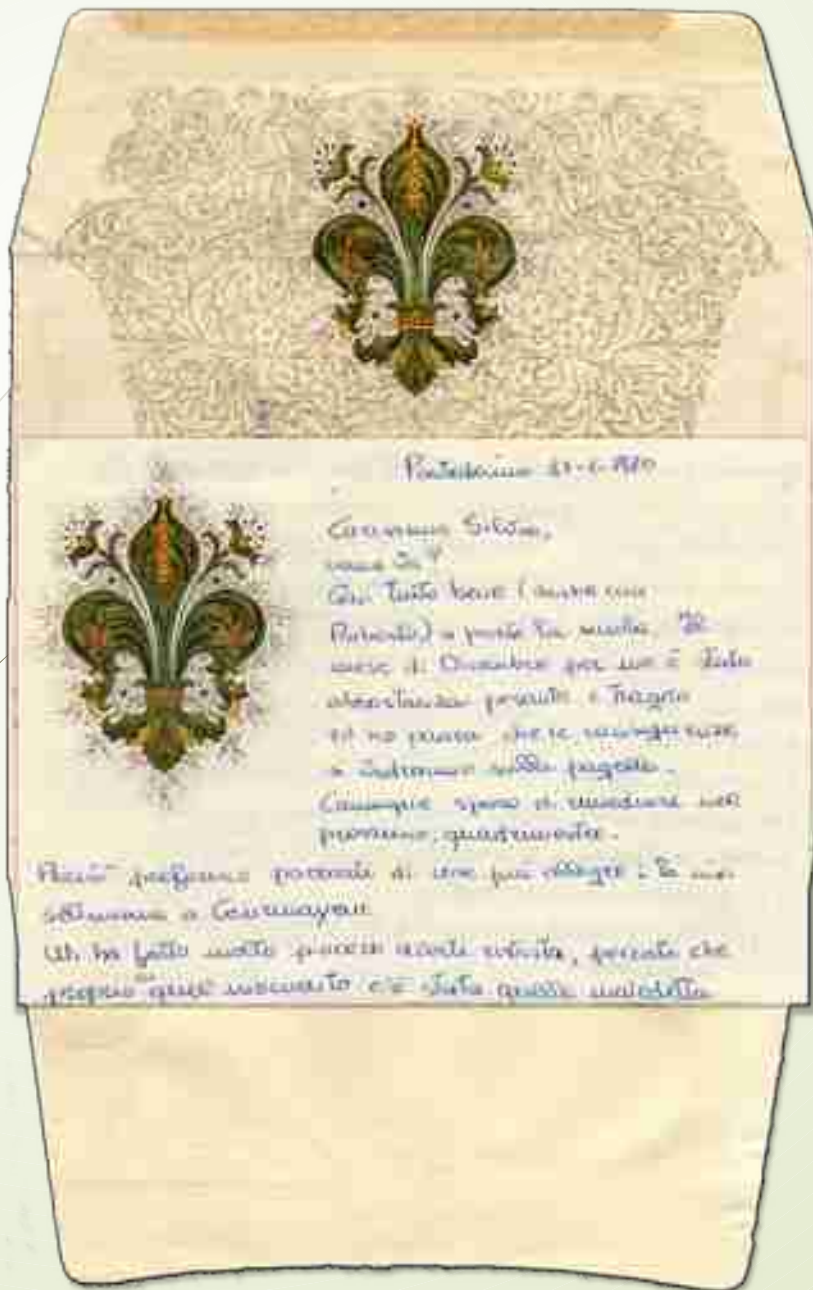 Carissima Silvia,
come va?
Qui tutto bene (anche con
Roberto) a parte la scuola. Il
mese di Dicembre per me è stato
abbastanza pesante e
ed ho paura che le conseguenze
si sulla pagella.
Comunque spero di rimediare nel
prossimo quadrimestre.
Però preferisco parlarti di cose più allegre: la mia
settimana a Courmayeur.
Mi ha fatto molto piacere averti, peccato che
proprio in quel momento c'è stata quella maledetta